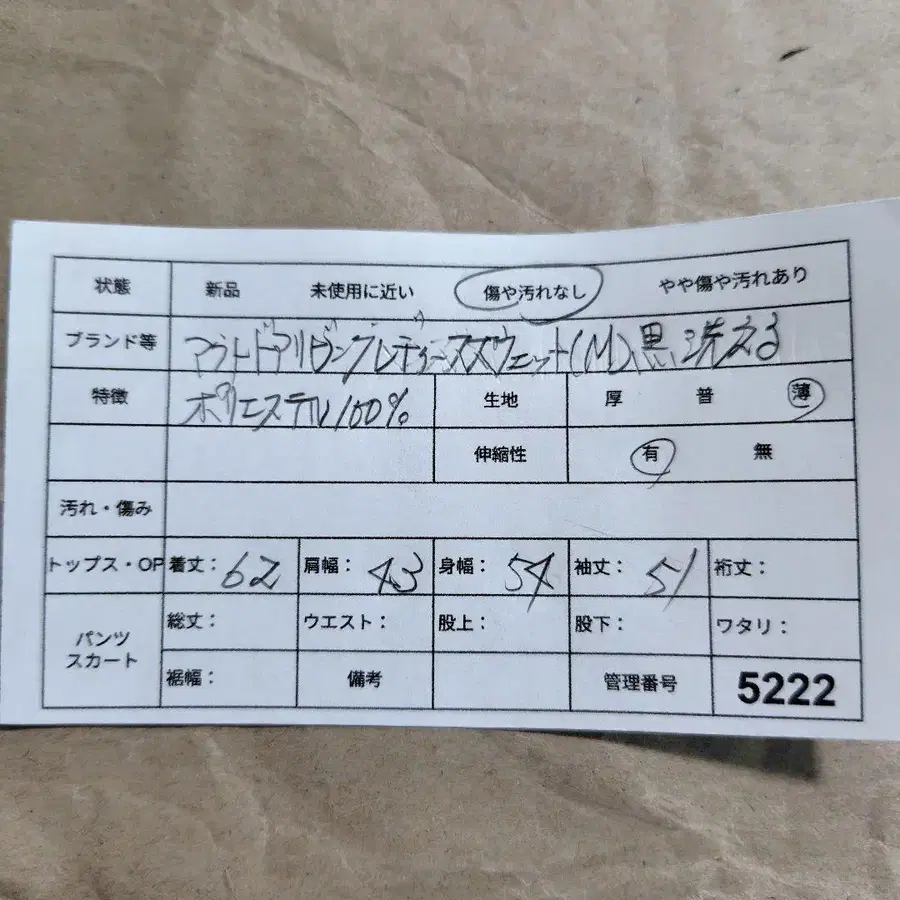 状態 新品 未使用に近い 傷や汚れなし やや傷や汚れあり
ブランド等 レディーススウェット(M)黒、洗える
特徴 ポリエステル100% 生地 厚 普 薄
伸縮性 有 無
汚れ・傷み
トップス・OP 着丈: 62 肩幅: 43 身幅: 54 袖丈: 51 裄丈:
パンツ スカート 総丈: ウエスト: 股上: 股下: ワタリ:
裾幅: 備考 管理番号 5222